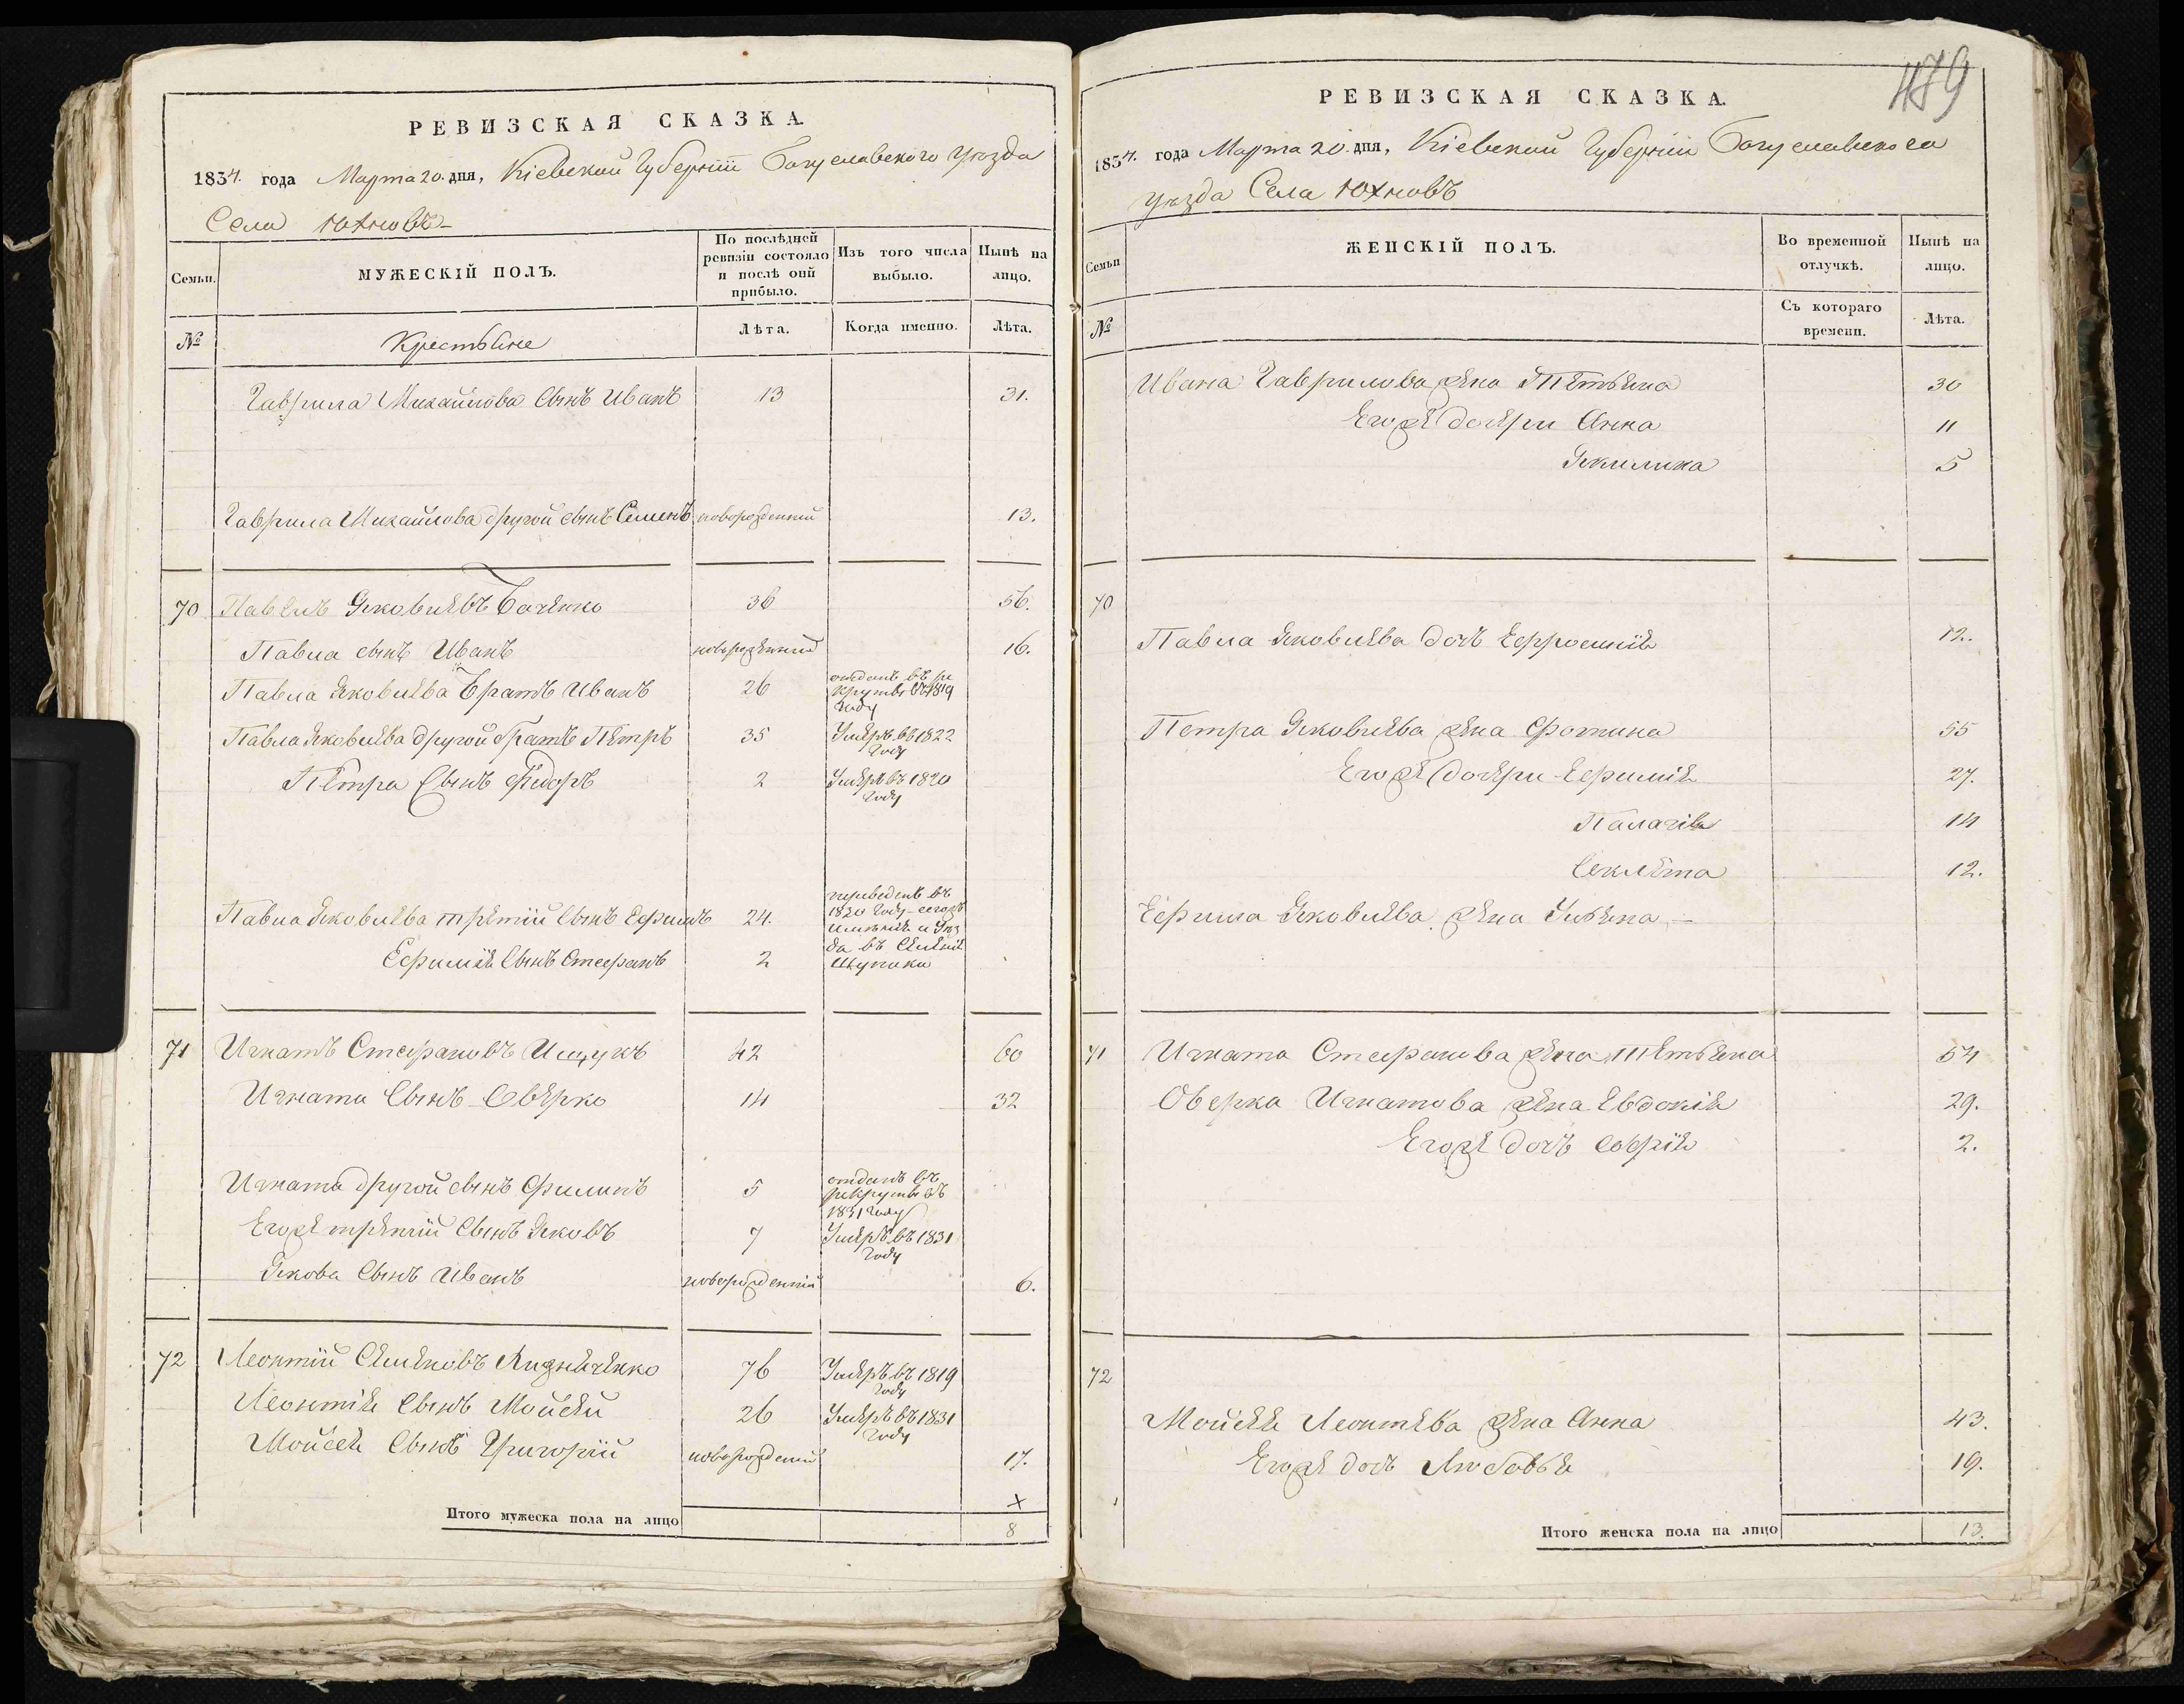 РЕВИЗСКАЯ СКАЗКА.
1834. года Марта 20. дня, Кіевской Губерніи Богуславского уѣзда
Села Юхновъ
Семьи.
МУЖЕСКІЙ ПОЛЪ.
По послѣдней ревизіи состояло и послѣ оной прибыло.
Изъ того числа выбыло.
Нынѣ на лицо.
№
Крестьяне
Лѣта.
Когда именно.
Лѣта.
Гаврила Михайлова Сынъ Иванъ 13 31.
Гаврила Михайлова другой сынъ Семенъ новорожденный 13.
70 Павелъ Яковлевъ 36 56.
Павла сынъ Иванъ новорожденный 16.
Павла Яковлева Братъ Иванъ 26 отданъ въ ре
круты въ 1819
году
Павла Яковлева другой Братъ Петръ 35 Умеръ въ 1822
году
Петра Сынъ Фёдоръ 2 Умеръ въ 1820
году
Павла Яковлева третій Сынъ Ефримъ 24. переведенъ въ
1820 году сегожъ
имѣнія и Уѣз
да въ Селеніе
Шупики
Ефримія Сынъ Стефанъ 2
71 Игнатъ Стефановъ Ищукъ 42 60
Игната Сынъ Оверко 14 32
Игната другой сынъ Филипъ 5 отданъ въ
рекруты въ
1831 году
Егоже третій Сынъ Яковъ 7 Умеръ въ 1831
году
Якова Сынъ Иванъ новорожденній 6.
72 Леонтій Семеновъ 76 Умеръ въ 1819
году
Леонтія Сынъ Мойсей 26 Умеръ въ 1831
году
Мойсея Сынъ Григорій новорожденый 17.
Итого мужеска пола на лицо 8
479
РЕВИЗСКАЯ СКАЗКА.
1834. года Марта 20. дня, Кіевской Губерніи Богуславского
уѣзда Села Юхновъ
Семьи
ЖЕНСКІЙ ПОЛЪ.
Во временной отлучкѣ.
Нынѣ на лицо.
№
Съ котораго времени.
Лѣта.
Ивана Гаврилова жена Тетьяна 30
Егоже дочери Анна 11
Якилина 5
70
Павла Яковлева дочь Ефросинія 12.
Петра Яковлева жена Фотина 55
Егоже дочери Ефимія 27.
Палагія 14
Секлета 12.
Ефрима Яковлева жена Ульяна
71 Игната Стефанова жена Тетьяна 54
Оверка Игнатова жена Евдокія 29.
Егоже дочь Софія 2.
72
Мойсея Леонтева жена Анна 43.
Егоже дочь Любовья 19.
Итого женска пола на лицо 13.